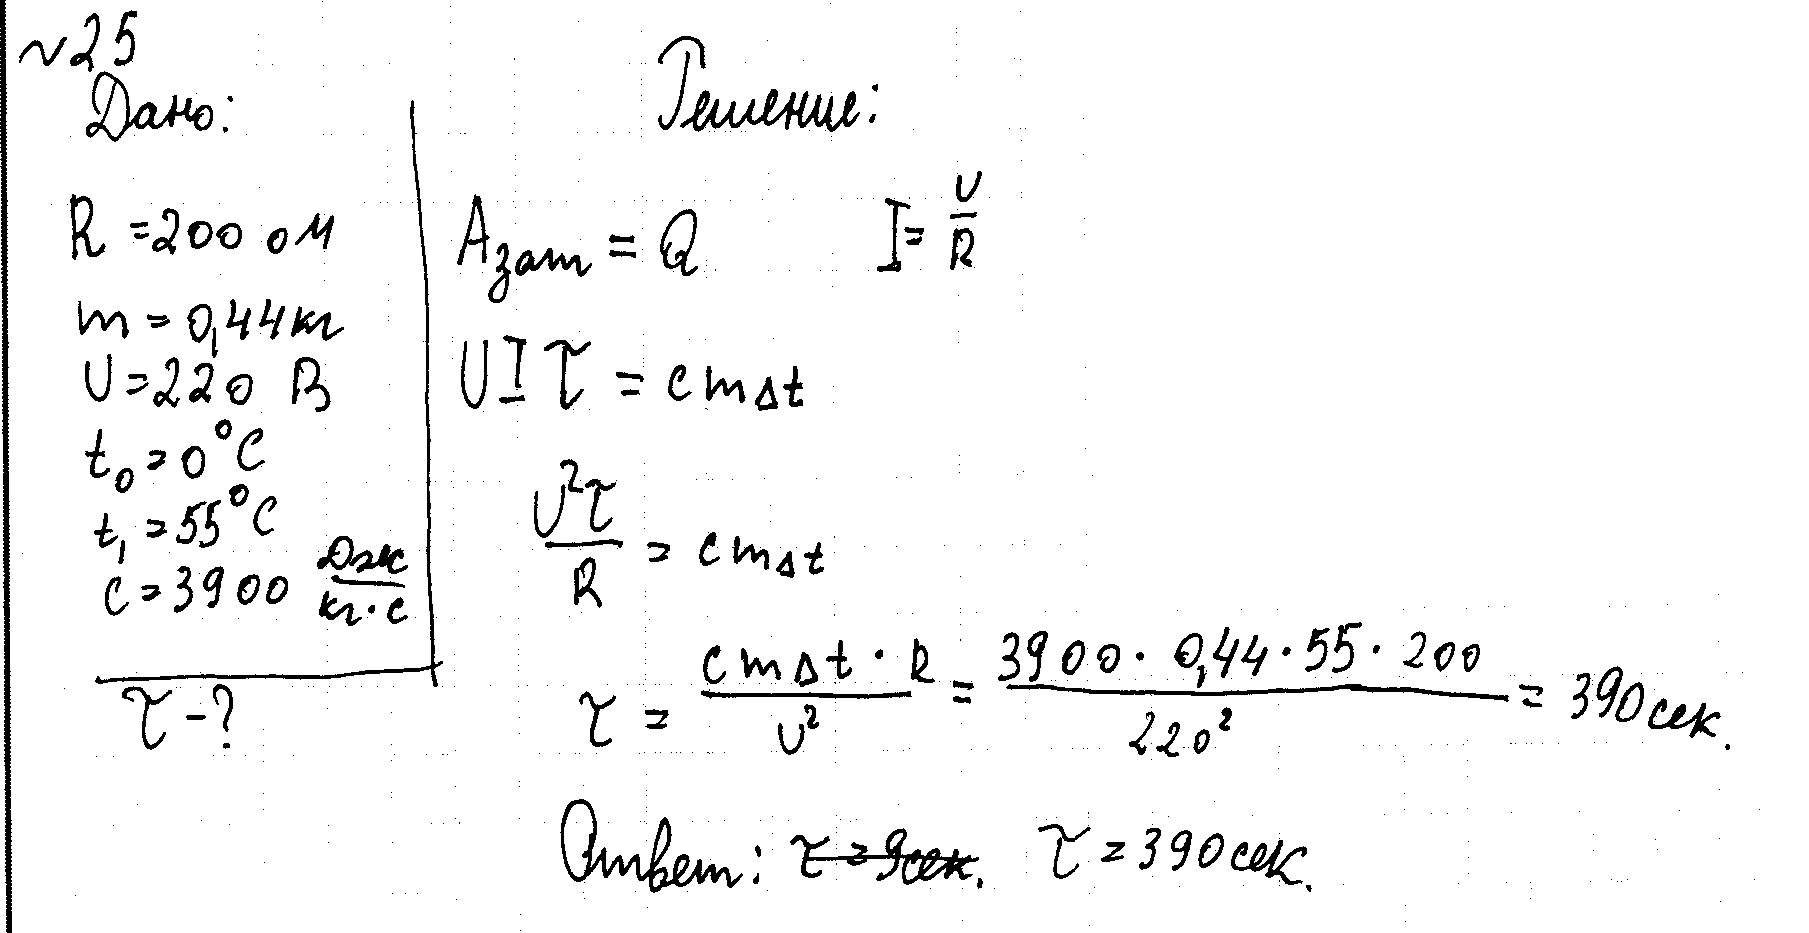 ~25
Дано:
R = 200 ом
m = 0,44кг
U = 220 В
t₀ = 0°C
t₁ = 55°C
c = 3900 Дж/кг·с
τ - ?
Решение:
Aзат = Q   I = U/R
UIτ = cmΔt
U²τ/R = cmΔt
τ = cmΔt·R/U² = 3900·0,44·55·200/220² = 390сек.
Ответ: τ = 9сек. τ = 390сек.